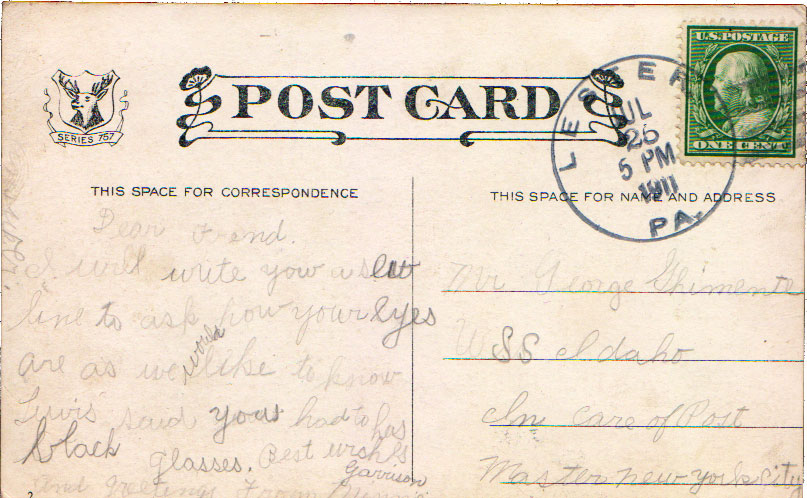 SERIES 757
POST CARD
LESTER
JUL
26
5 PM
1911
PA.
U.S. POSTAGE
ONE CENT
THIS SPACE FOR CORRESPONDENCE
Dear Frend.
I will write you a
line to ask how your eyes
are as we would like to know
Lewis said you had to has
black glasses. Best wishes
and greetings from
Garrison
THIS SPACE FOR NAME AND ADDRESS
Mr George Ghimente
USS Idaho
In care of Post
Master new york city
2